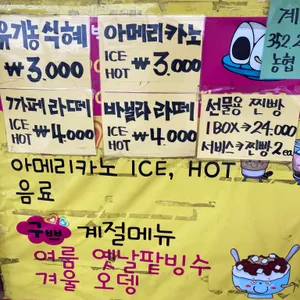 유기농식혜
₩3.000
아메리카노
ICE
HOT ₩3.000
계
352.2
농협
카페라떼
ICE
HOT ₩4.000
바닐라라떼
ICE
HOT ₩4.000
선물용 찐빵
1BOX→24.000
서비스→찐빵2ea
아메리카노 ICE, HOT
음료
구쁘 계절메뉴
여름 옛날팥빙수
겨울 오뎅